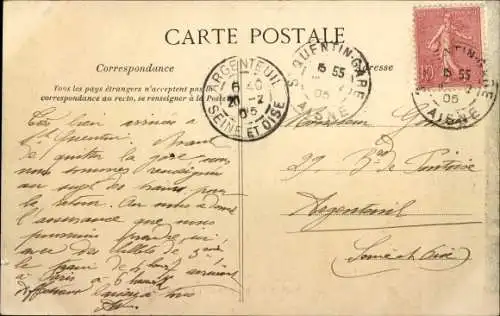 CARTE POSTALE
Correspondance
Adresse
Tous les pays étrangers n'acceptent pas la
correspondance au recto, se renseigner à la Poste
ARGENTEUIL
6 40
20 -2
05
SEINE ET OISE
St QUENTIN-GARE
15 55
05
AISNE
St QUENTIN-GARE
15 55
05
AISNE
10
Très bien arrivés à
St Quentin. Avant
de quitter la gare nous
nous sommes renseignés
au sujet des trains pour
le retour. On nous a donné
l'assurance que nous
pourrions prendre ici,
avec des billets de 3me
le train de 4 heures arrivant
à Paris à 6 heures
Affectueux baisers à tous
Monsieur
29 Bd de Pontoise
Argenteuil
Seine et Oise